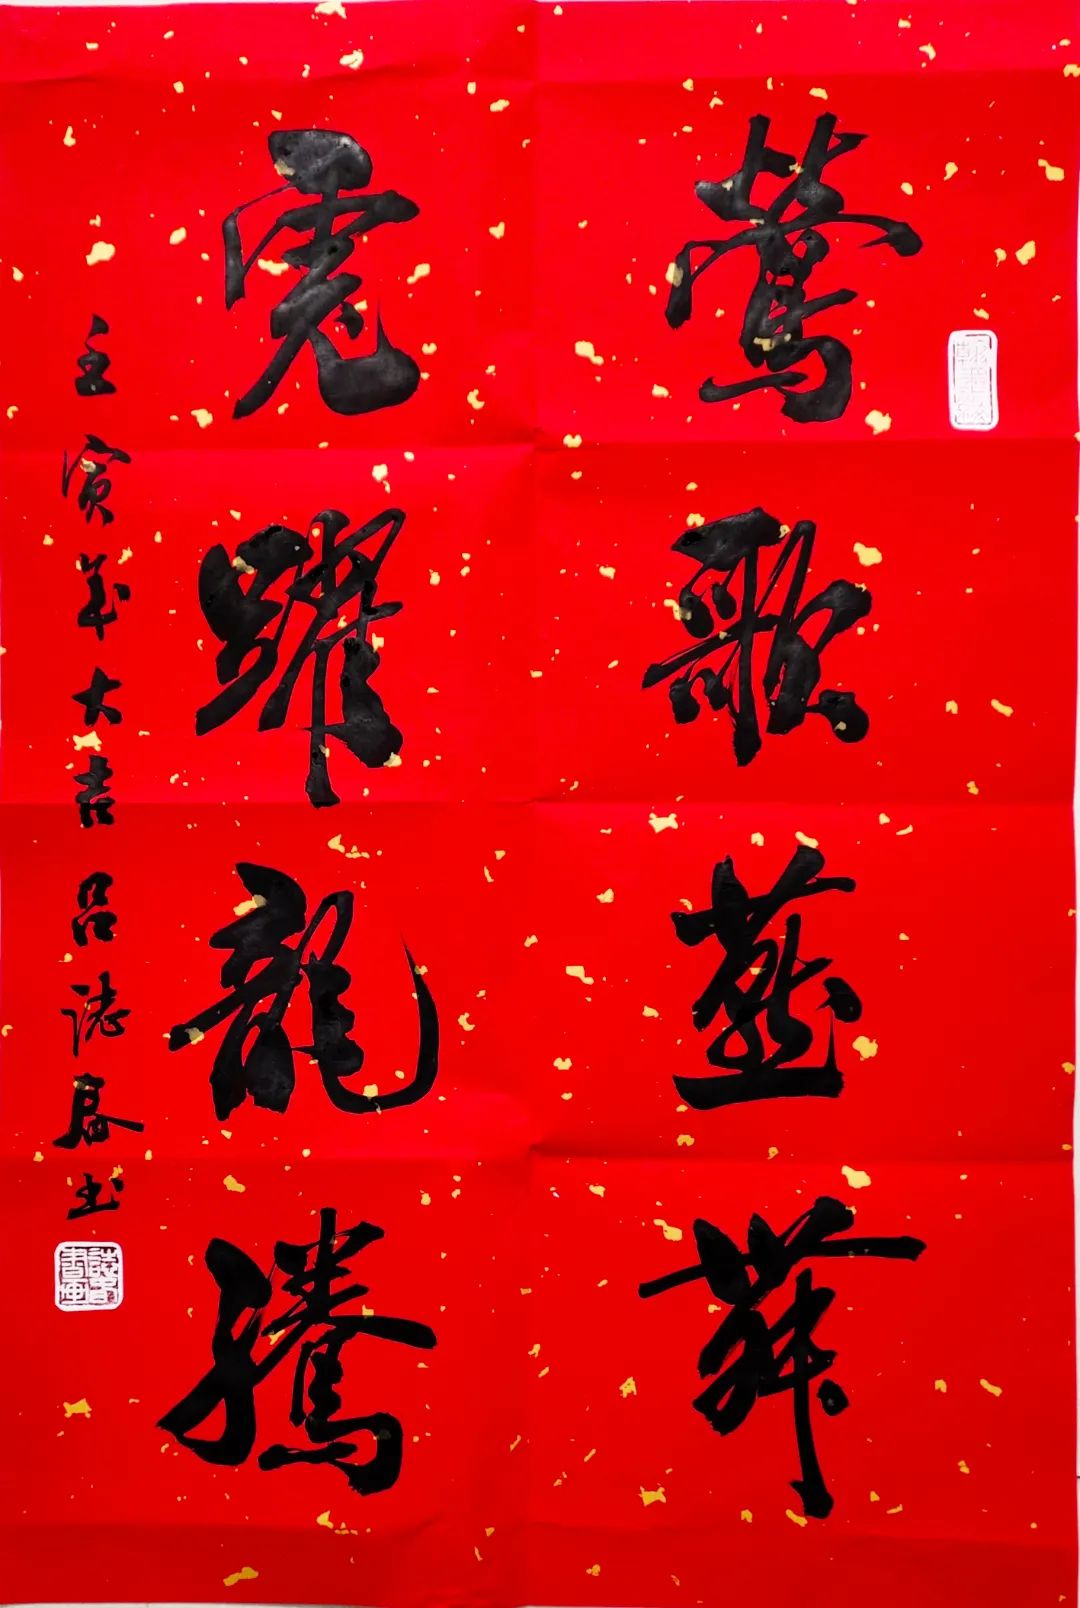 鶯歌燕舞
虎躍龍騰
壬寅年大吉 呂誌春书